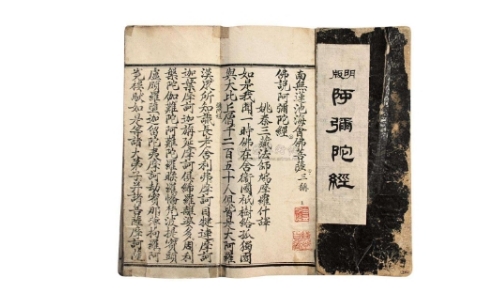 明版
阿彌陀經
南無蓮池海會佛菩薩 三稱
佛說阿彌陀經
姚秦三藏法師鳩摩羅什譯
如是我聞一時佛在舍衛國祇樹給孤獨園
與大比丘僧千二百五十人俱皆是大阿羅
漢眾所知識長老舍利弗摩訶目犍連摩訶
迦葉摩訶迦旃延摩訶俱絺羅離婆多周利
槃陀伽難陀阿難陀羅睺羅憍梵波提賓頭
盧頗羅墮迦留陀夷摩訶劫賓那薄拘羅阿
㝹樓馱如是等諸大弟子并諸菩薩摩訶薩